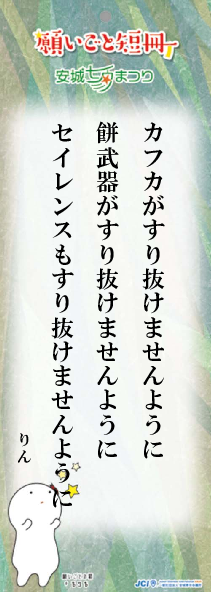 願いごと短冊
安城七夕まつり
カフカがすり抜けませんように
餅武器がすり抜けませんように
セイレンスもすり抜けませんように
りん
JCI